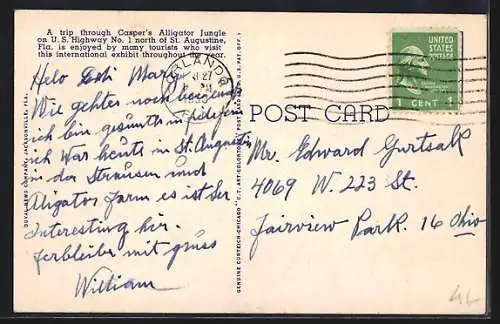 A trip through Casper's Alligator Jungle
on U. S. Highway No. 1 north of St. Augustine,
Fla. is enjoyed by many tourists who visit
this international exhibit throughout the year.
Helo Mary
Wie gehtes noch
ich bin gesunth in
ich War heute in St. Augustin
in der Straussen und
Aligator Farm es ist Ser
Interesting hir.
ferbleiber mit grüss
William
DUVAL NEWS COMPANY, JACKSONVILLE, FLA.
GENUINE CURTEICH-CHICAGO "C.T. ART-COLORTONE" POST CARD (REG. U.S. PAT. OFF.)
ORLANDO
27
PM
UNITED
STATES
POSTAGE
1 CENT 1
POST CARD
Mr. Edward Gurtsak
4069 W. 223 St.
Fairview Park. 16 Ohio